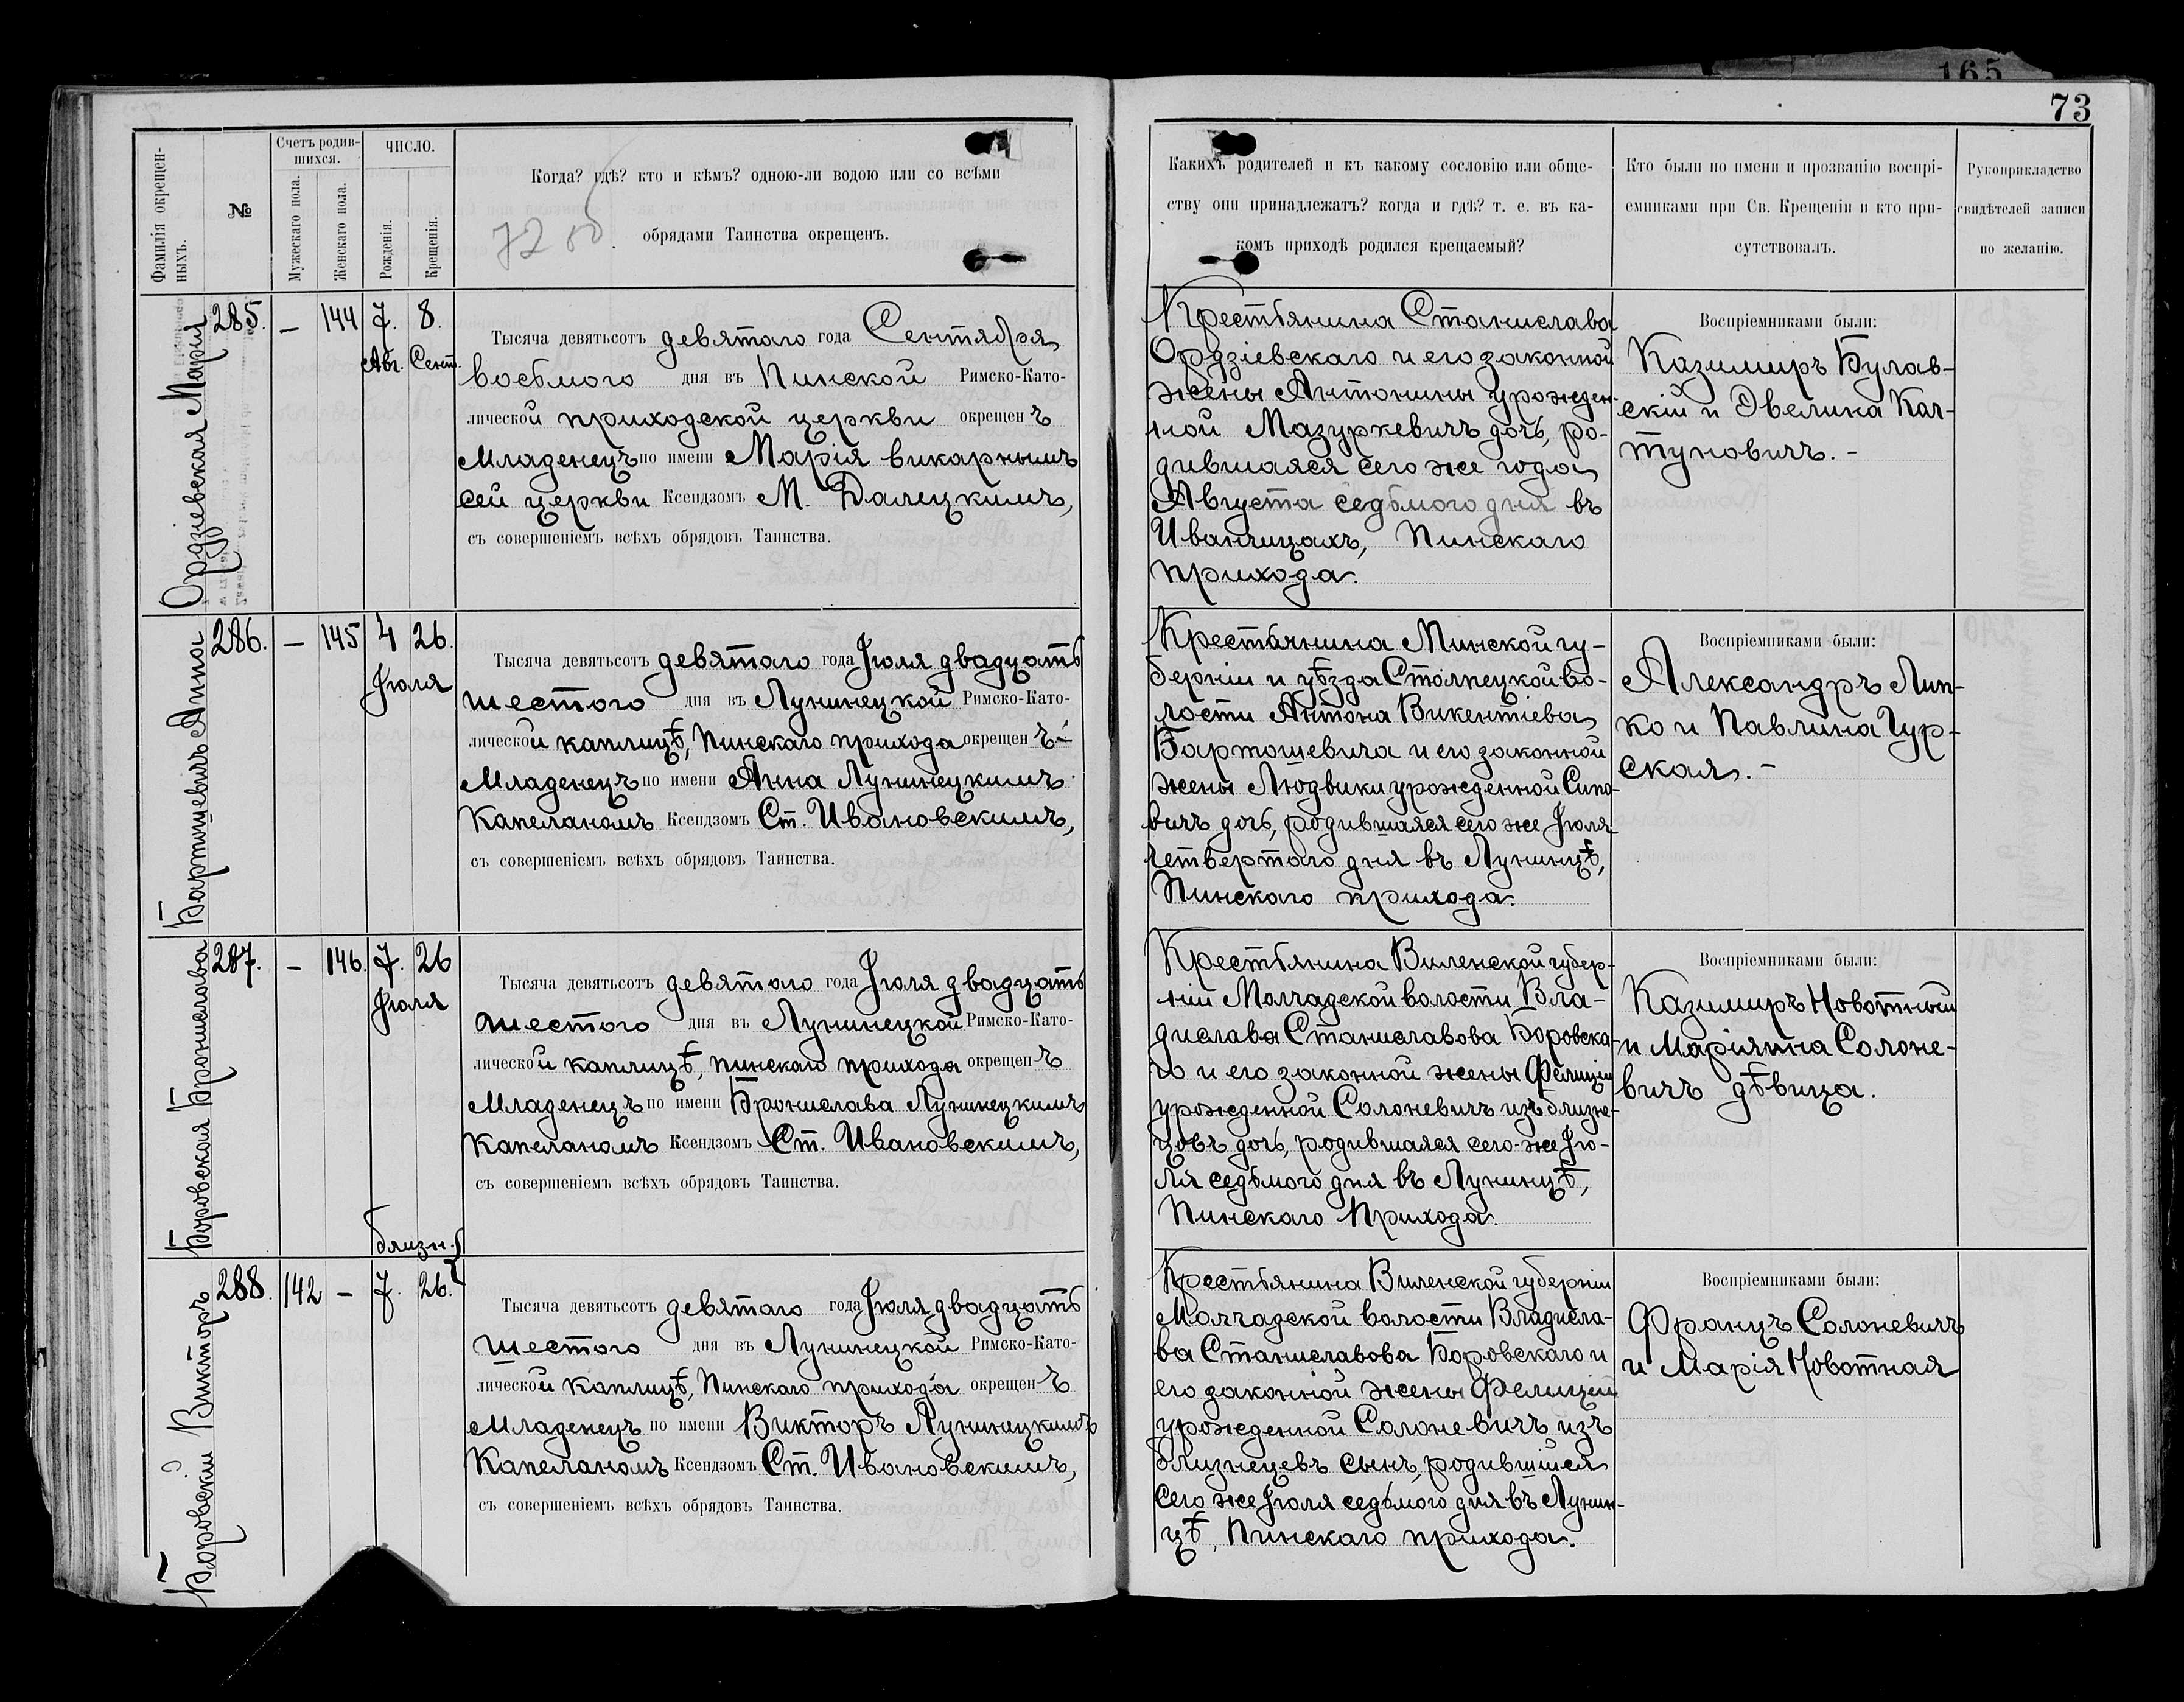 165
73
Фамилія окрещен-
ныхъ.
№
Счетъ родив-
шихся.
Мужескаго пола.
Женскаго пола.
ЧИСЛО.
Рожденія.
Крещенія.
Когда? гдѣ? кто и кѣмъ? одною-ли водою или со всѣми
обрядами Таинства окрещенъ.
Какихъ родителей и къ какому сословію или обще-
ству они принадлежатъ? когда и гдѣ? т. е. въ ка-
комъ приходѣ родился крещаемый?
Кто были по имени и прозванію воспрі-
емниками при Св. Крещеніи и кто при-
сутствовалъ.
Рукоприкладство
свидѣтелей записи
по желанію.
Ордзіевская Марія
285. – 144 7. 8.
Авг. Сент.
Тысяча девятьсотъ девятаго года Сентября
восьмого дня въ Пинской Римско-Като-
лической приходской церкви окрещенъ
Младенецъ по имени Марія викарнымъ
сей церкви Ксендзомъ М. Далецкимъ,
съ совершеніемъ всѣхъ обрядовъ Таинства.
Крестьянина Станислава
Ордзіевскаго и его законной
жены Антонины урожден-
ной Мазуркевичъ дочь, ро-
дившаяся сего же года
Августа седьмого дня въ
Иванчицахъ, Пинскаго
прихода.
Воспріемниками были:
Казимиръ Булав-
скій и Эвелина Кал-
туновичъ. –
Бартошевичъ Анна
286. – 145 4 26.
Іюля
Тысяча девятьсотъ девятаго года Іюля двадцать
шестого дня въ Лунинецкой Римско-Като-
лической каплицѣ, Пинскаго прихода окрещенъ
Младенецъ по имени Анна Лунинецкимъ
Капеланомъ Ксендзомъ Ст. Ивановскимъ,
съ совершеніемъ всѣхъ обрядовъ Таинства.
Крестьянина Минской гу-
берніи и уѣзда Столпецкой во-
лости Антона Викентіева
Бартошевича и его законной
жены Людвики урожденной Сипо-
вичъ дочь, родившаяся сего же Іюля
четвертого дня въ Лунинцѣ,
Пинскаго прихода.
Воспріемниками были:
Александръ Лип-
ко и Павлина Гур-
ская. –
Боровская Бронислава
287. – 146. 7. 26
Іюля
близн.
Тысяча девятьсотъ девятаго года Іюля двадцать
шестого дня въ Лунинецкой Римско-Като-
лической каплицѣ, Пинскаго прихода окрещенъ
Младенецъ по имени Бронислава Лунинецкимъ
Капеланомъ Ксендзомъ Ст. Ивановскимъ,
съ совершеніемъ всѣхъ обрядовъ Таинства.
Крестьянина Виленской губер-
ніи Молчадской волости Вла-
дислава Станиславова Боровска-
го и его законной жены Фелиціи
урожденной Солоневичъ изъ близне-
цовъ дочь, родившаяся сего-же Ію-
ля седьмого дня въ Лунинцѣ,
Пинскаго Прихода.
Воспріемниками были:
Казимиръ Новотный
и Маріянна Солоне-
вичъ дѣвица.
Боровскій Викторъ
288. 142 – 7. 26.
Тысяча девятьсотъ девятаго года Іюля двадцать
шестого дня въ Лунинецкой Римско-Като-
лической каплицѣ, Пинскаго прихода окрещенъ
Младенецъ по имени Викторъ Лунинецкимъ
Капеланомъ Ксендзомъ Ст. Ивановскимъ,
съ совершеніемъ всѣхъ обрядовъ Таинства.
Крестьянина Виленской губерніи
Молчадской волости Владисла-
ва Станиславова Боровскаго и
его законной жены Фелиціи
урожденной Солоневичъ изъ
близнецевъ сынъ, родившійся
сего же Іюля седьмого дня въ Лунин-
цѣ, Пинскаго прихода.
Воспріемниками были:
Францъ Солоневичъ
и Марія Новотная